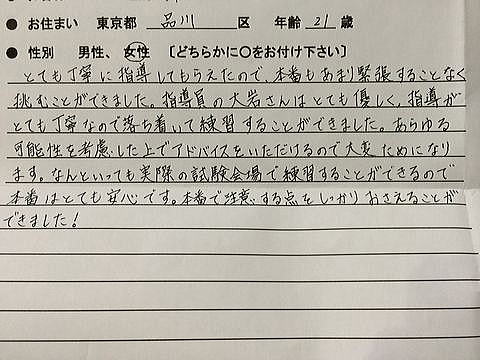 ● お住まい 東京都 品川 区 年齢 21 歳
● 性別 男性、女性 〔どちらかに○をお付け下さい〕
とても丁寧に指導してもらえたので、本番もあまり緊張することなく
挑むことができました。指導員の大岩さんはとても優しく、指導が
とても丁寧なので落ち着いて練習することができました。あらゆる
可能性を考慮した上でアドバイスをいただけるので大変ためになり
ます。なんといっても実際の試験会場で練習することができるので
本番はとても安心です。本番で注意する点をしっかりおさえることが
できました!